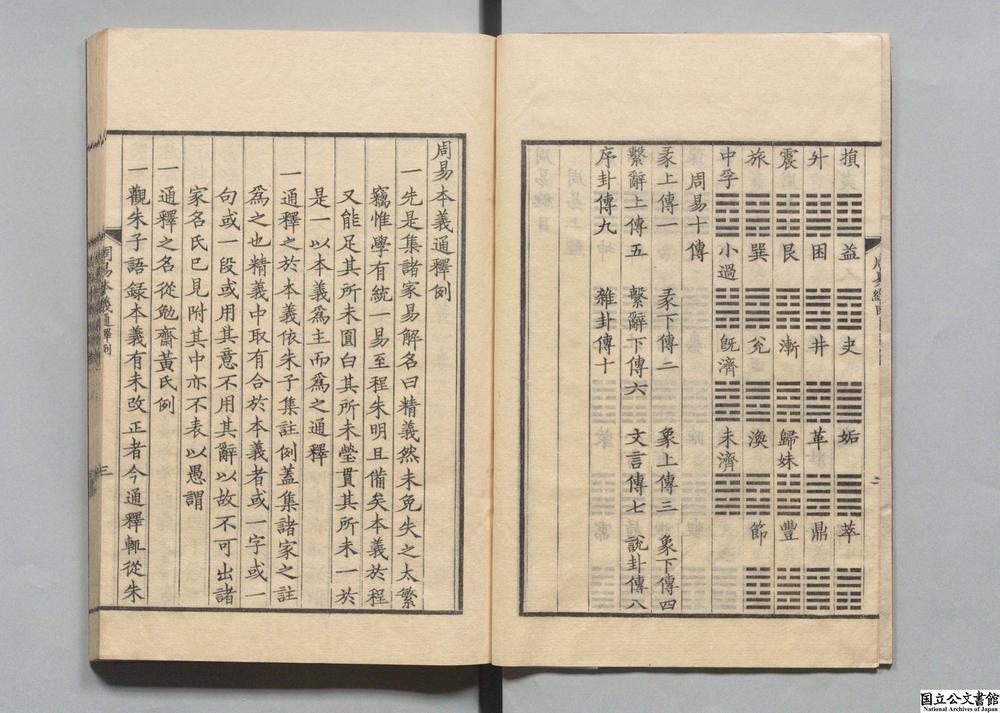 損 益 夬 姤 萃
升 困 井 革 鼎
震 艮 漸 歸妹 豐
旅 巽 兌 渙 節
中孚 小過 旣濟 未濟
周易十傳
彖上傳一 彖下傳二 象上傳三 象下傳四
繫辭上傳五 繫辭下傳六 文言傳七 說卦傳八
序卦傳九 雜卦傳十
二
周易本義通釋例
一先是集諸家易解名曰精義然未免失之太繁
竊惟學有統一易至程朱明且備矣本義於程
又能足其所未圓白其所未瑩貫其所未一於
是一以本義爲主而爲之通釋
一通釋之於本義依朱子集註例蓋集諸家之註
爲之也精義中取有合於本義者或一字或一
句或一段或用其意不用其辭以故不可出諸
家名氏已見附其中亦不表以愚謂
一通釋之名從勉齋黃氏例
一觀朱子語録本義有未改正者今通釋輒從朱
周易本義通釋例
三
国立公文書館
National Archives of Japan